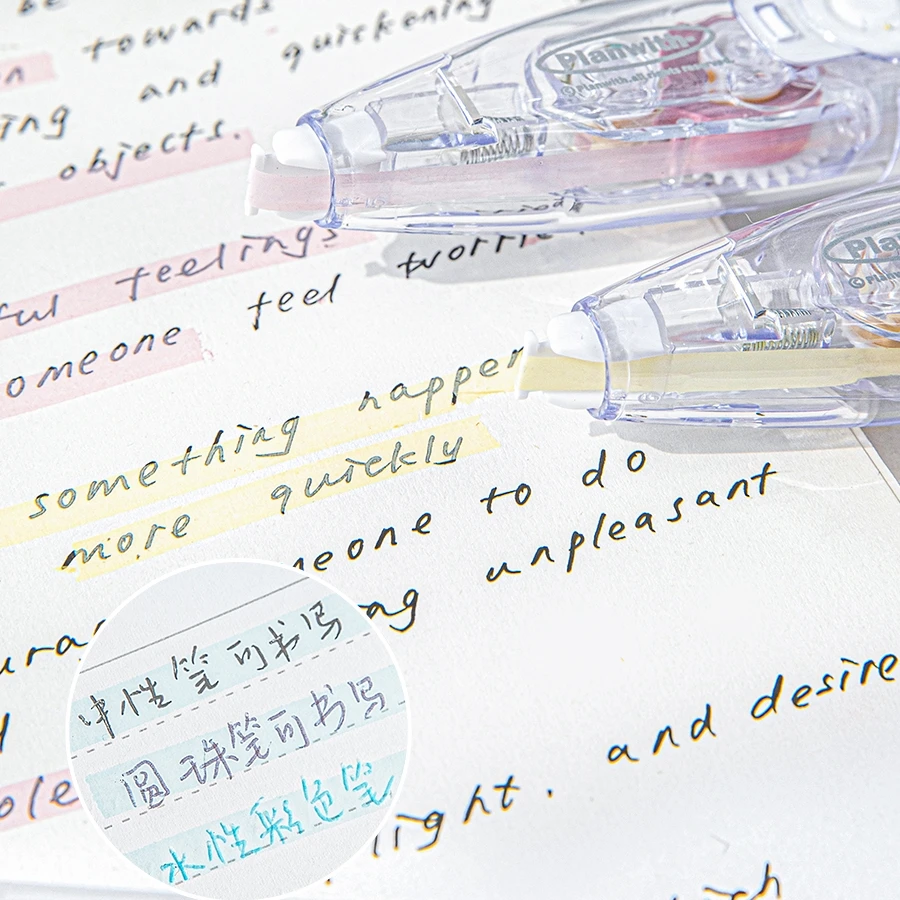 towards
and quickening
objects.
Planwith
©Planwith.all rights reserved.
feelings
someone feel
something happen
more quickly
to do
unpleasant
and desire
light.
中性笔可书写
圆珠笔可书写
水性彩色笔